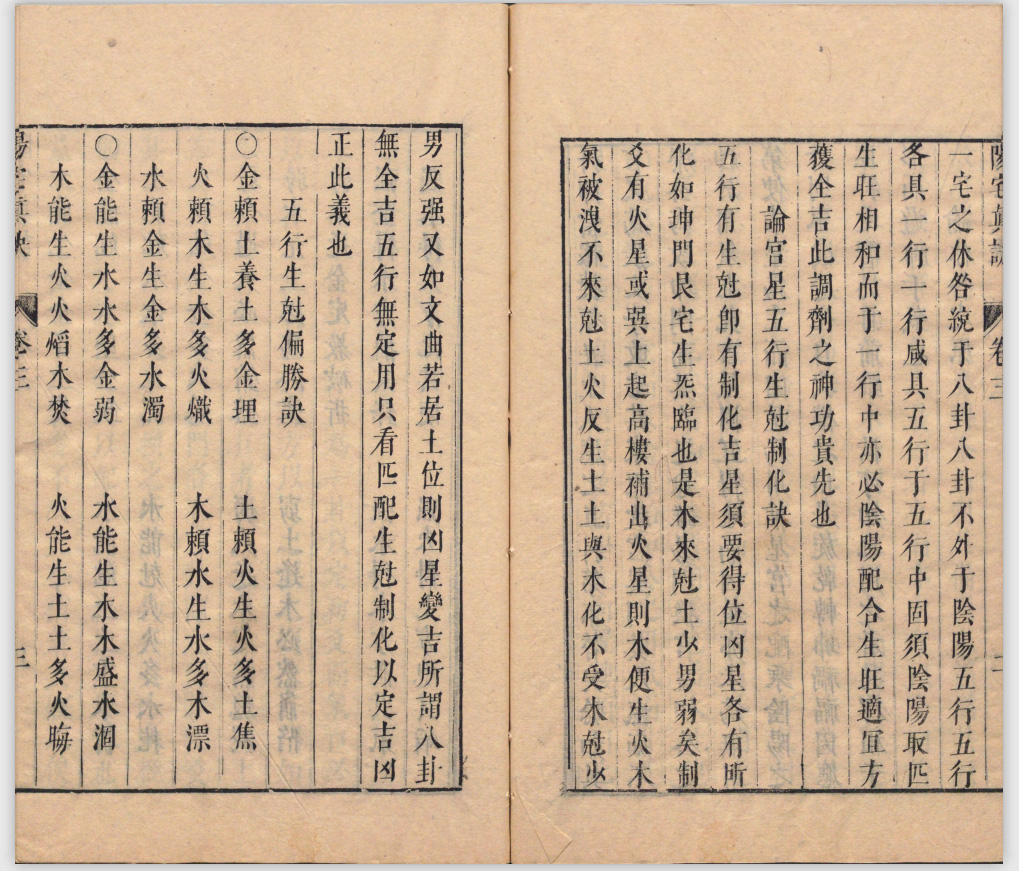 陽宅眞訣 卷三 二
一宅之休咎統于八卦八卦不外于陰陽五行五行
各具一行一行咸具五行于五行中固須陰陽取匹
生旺相和而于一行中亦必陰陽配合生旺適宜方
獲全吉此調劑之神功貴先也
論宮星五行生尅制化訣
五行有生尅卽有制化吉星須要得位凶星各有所
化如坤門艮宅生炁臨也是木來尅土少男弱矣制
爻有火星或巽上起高樓補出火星則木便生火木
氣被洩不來尅土火反生土土與木化不受木尅少
男反强又如文曲若居土位則凶星變吉所謂八卦
無全吉五行無定用只看匹配生尅制化以定吉凶
正此義也
五行生尅偏勝訣
〇金賴土養土多金理 土賴火生火多土焦
火賴木生木多火熾 木賴水生水多木漂
水賴金生金多水濁
〇金能生水水多金弱 水能生木木盛水涸
木能生火火熖木焚 火能生土土多火晦
陽宅眞訣 卷三 三